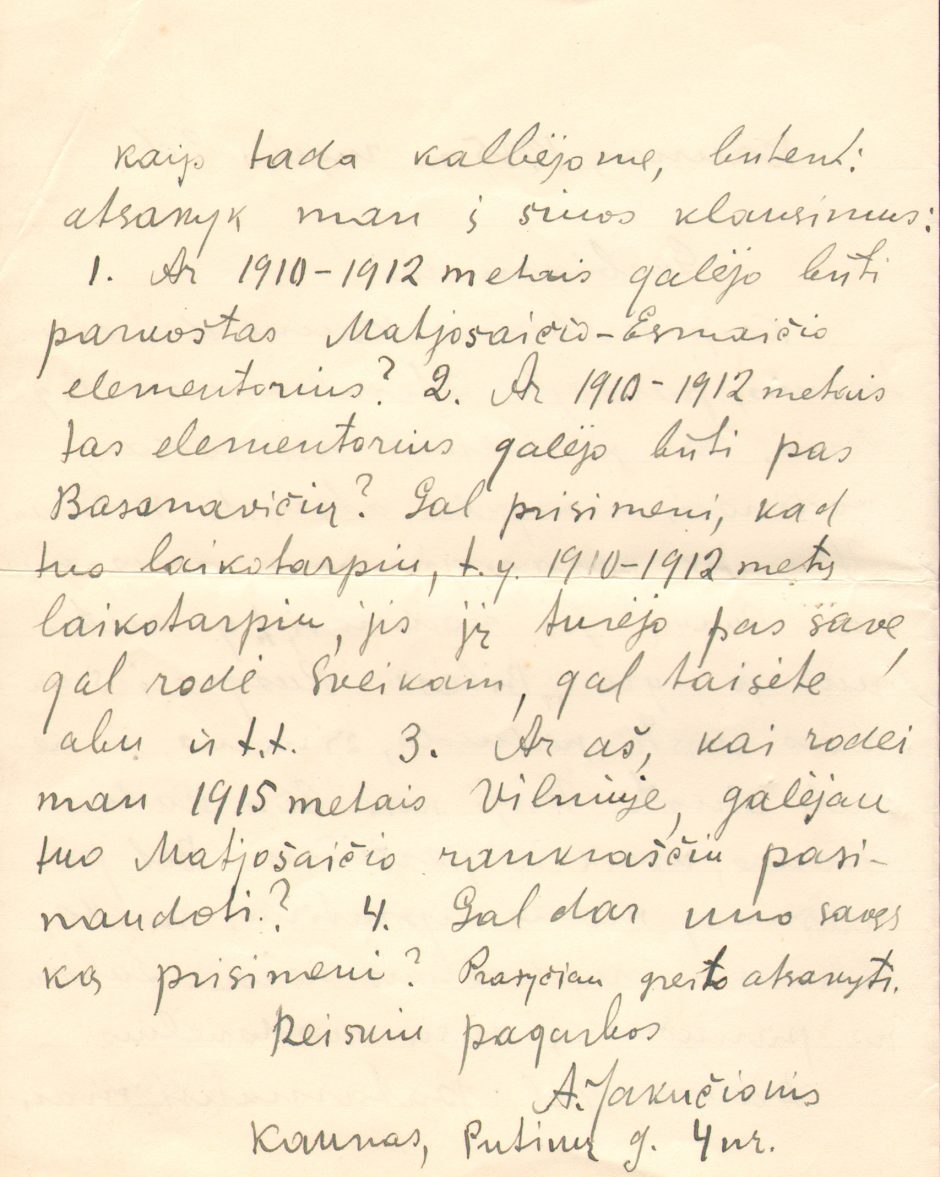 kaip tada kalbėjome, būtent:
atsakyk man į šiuos klausimus:
1. Ar 1910-1912 metais galėjo būti
paruoštas Matjošaičio-Esmaičio
elementorius? 2. Ar 1910-1912 metais
tas elementorius galėjo būti pas
Basanavičių? Gal prisimeni, kad
tuo laikotarpiu, t.y. 1910-1912 metų
laikotarpiu, jis jį turėjo pas save,
gal rodė Sveikam, gal taisėte
abu ir t.t. 3. Ar aš, kai rodei
man 1915 metais Vilniuje, galėjau
tuo Matjošaičio rankraščiu pasi-
naudoti? 4. Gal dar nuo savęs
ką prisimeni? Prašyčiau greito atsakyti.
Reiškiu pagarbos
A. Jakučionis
Kaunas, Putinų g. 4 nr.